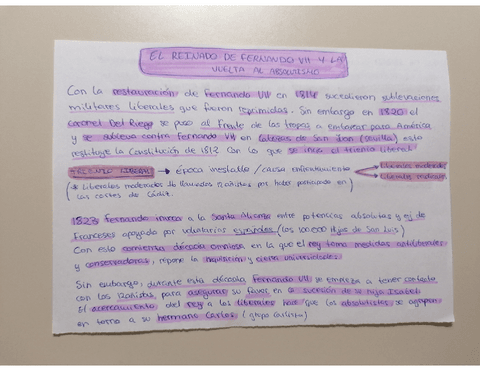 EL REINADO DE FERNANDO VII Y LA
VUELTA AL ABSOLUTISMO
Con la restauración de Fernando VII en 1814 sucedieron sublevaciones
militares liberales que fueron reprimidas. Sin embargo en 1820 el
coronel Del Riego se puso al frente de las tropas a embarcar para América
y se subleva contra Fernando VII en Cabezas de San Juan (Sevilla) este
restituye la Constitución de 1812 con lo que se inicia el trienio liberal.
TRIENIO LIBERAL → época inestable / caos enfrentamiento
liberales moderados
liberales
(* Liberales moderados llamados 12añistas por haber participado en
las cortes de Cádiz.
1823 Fernando invoca a la Santa Alianza entre potencias absolutas y ej de
Franceses apoyado por voluntarios españoles (los 100.000 hijos de San Luis)
Con esto comienza década ominosa en la que el rey toma medidas antiliberales
y conservadoras, repone la inquisición y cierra universidades.
Sin embargo, durante esta década Fernando VII se empieza a tener contacto
con los 12añistas, para asegurar su favor en la sucesión de su hija Isabel
El acercamiento del rey a los liberales hace que los absolutistas se agrupen
en torno a su hermano Carlos (grupo carlista)